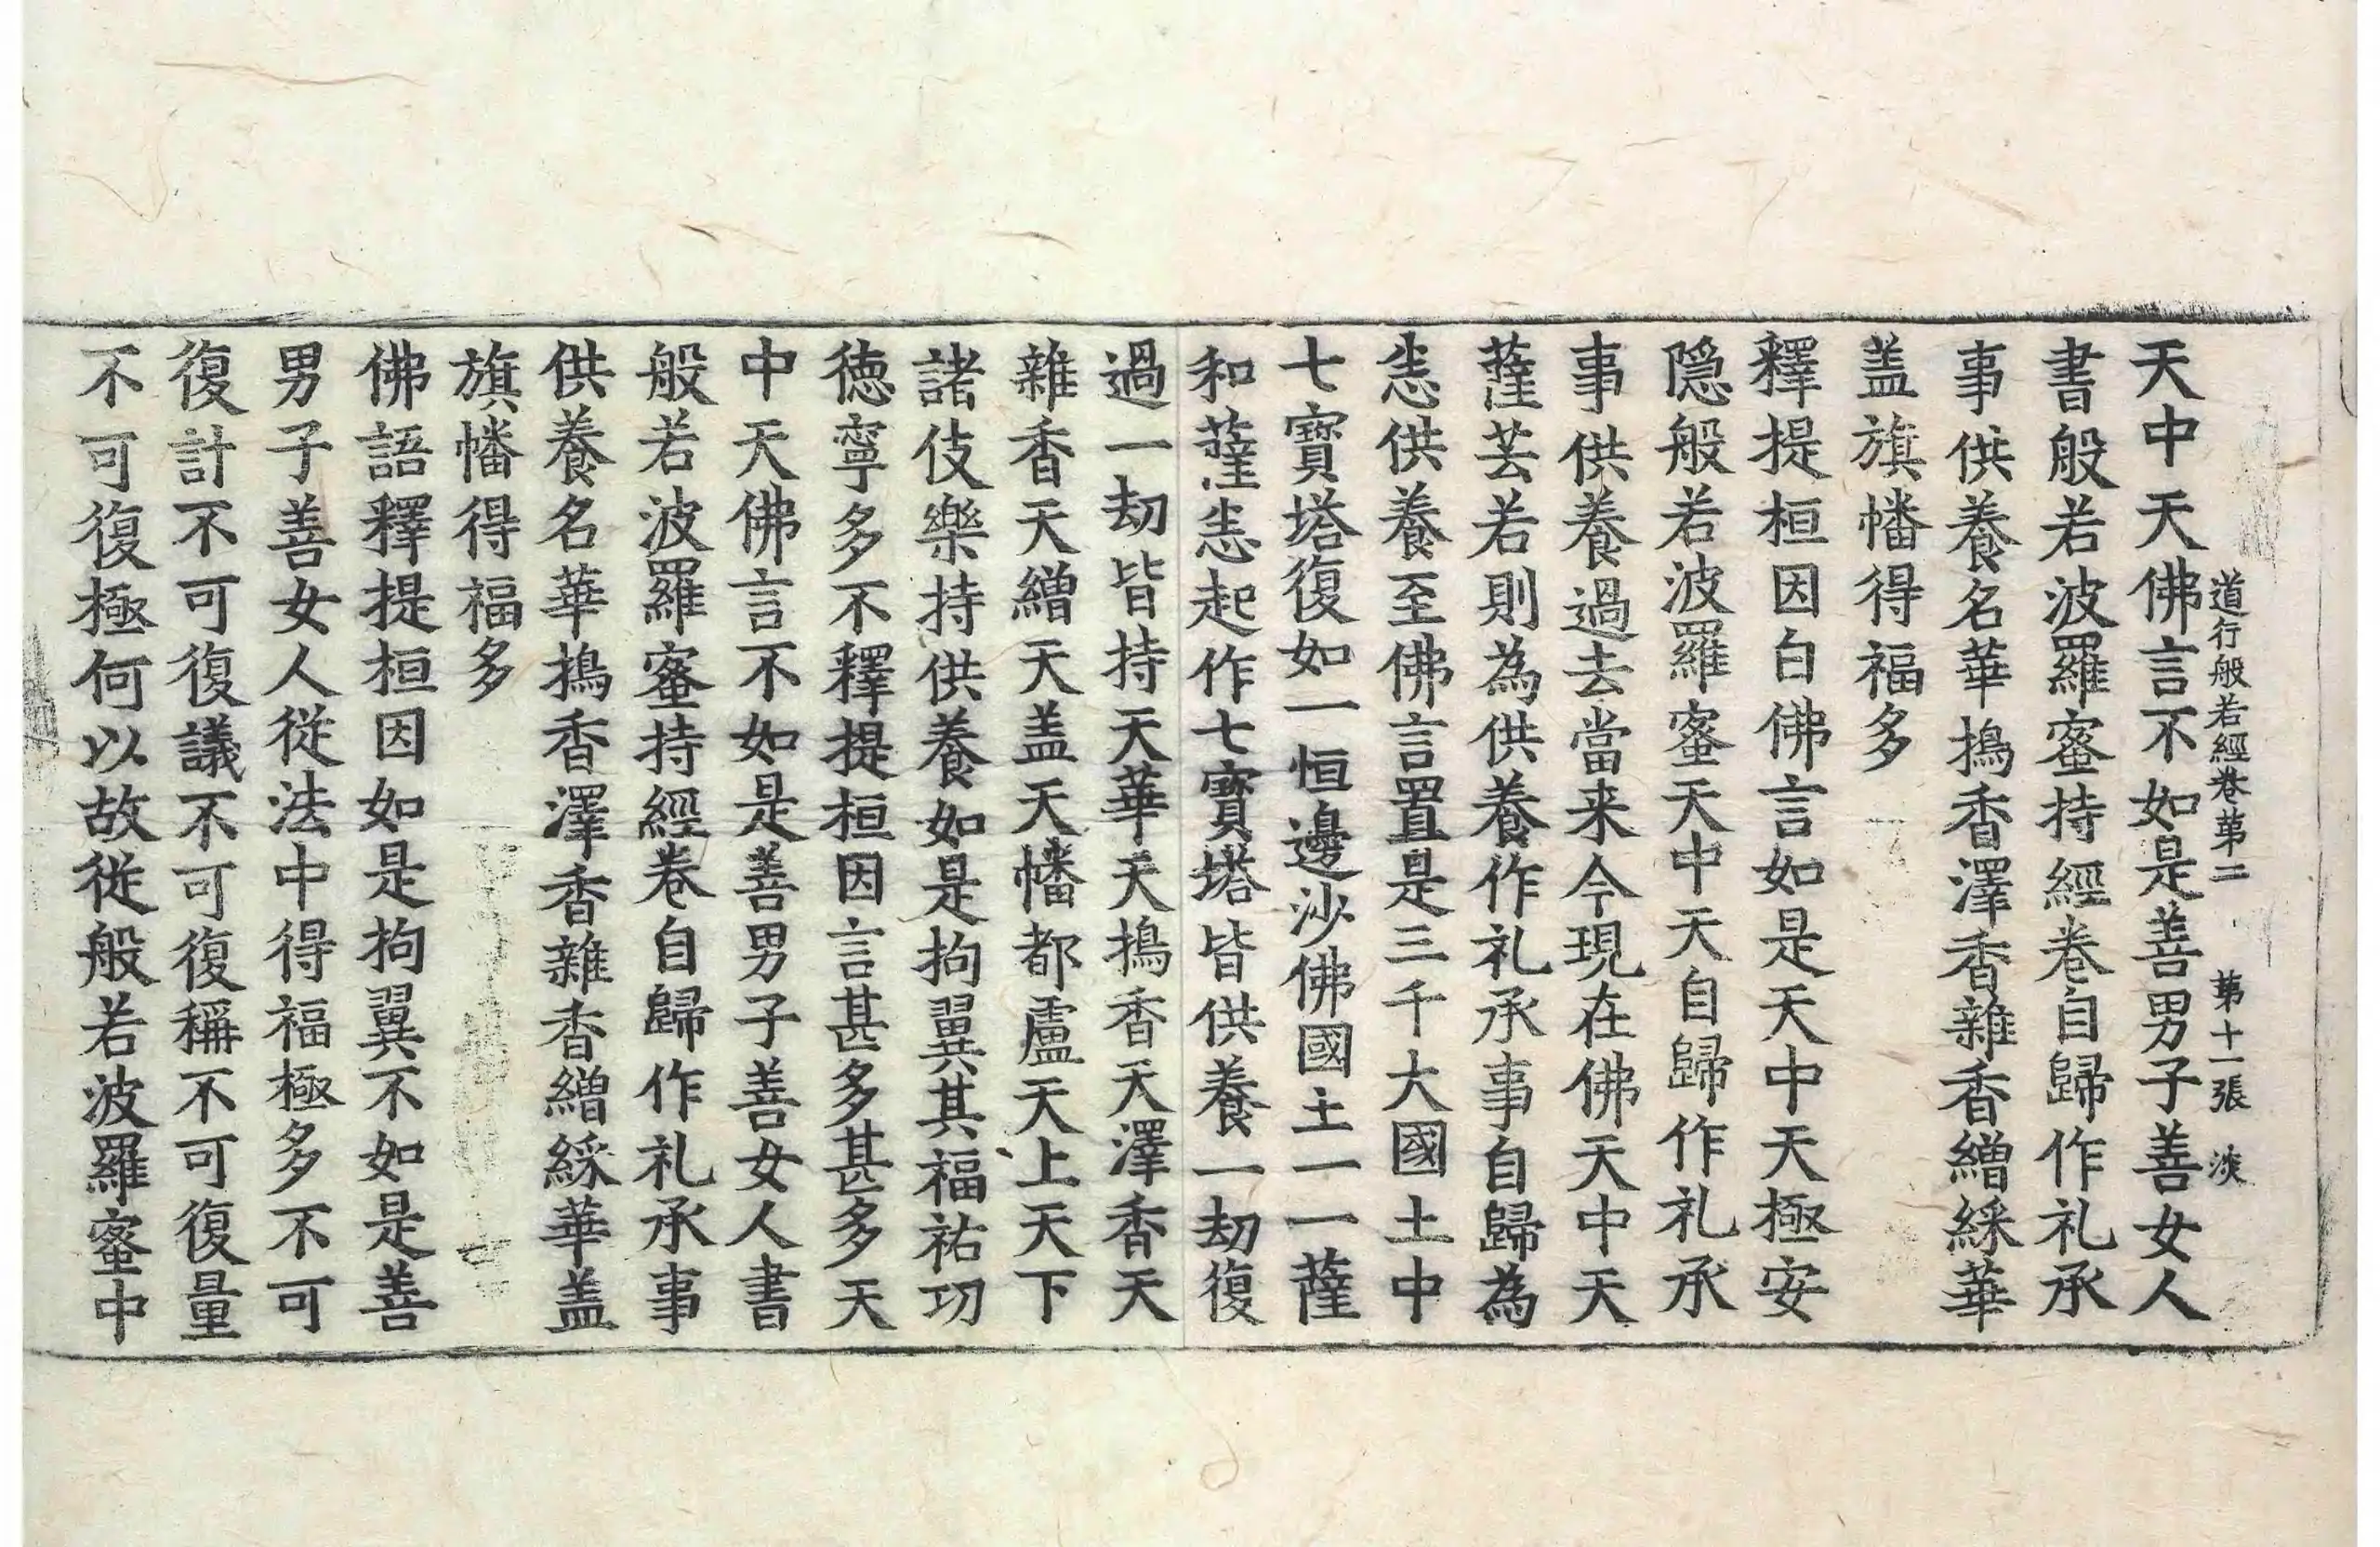 道行般若經卷第二 第十一張 淡
天中天佛言不如是善男子善女人
書般若波羅蜜持經卷自歸作礼承
事供養名華搗香澤香雜香繒綵華
盖旗幡得福多
釋提桓因白佛言如是天中天極安
隠般若波羅蜜天中天自歸作礼承
事供養過去當来今現在佛天中天
薩芸若則為供養作礼承事自歸為
悉供養至佛言置是三千大國土中
七寶塔復如一恒邊沙佛國土一一薩
和薩悉起作七寶塔皆供養一劫復
過一劫皆持天華天搗香天澤香天
雜香天繒天盖天幡都盧天上天下
諸伎樂持供養如是拘翼其福祐功
徳寧多不釋提桓因言甚多甚多天
中天佛言不如是善男子善女人書
般若波羅蜜持經卷自歸作礼承事
供養名華搗香澤香雜香繒綵華盖
旗幡得福多
佛語釋提桓因如是拘翼不如是善
男子善女人從法中得福極多不可
復計不可復議不可復稱不可復量
不可復極何以故從般若波羅蜜中